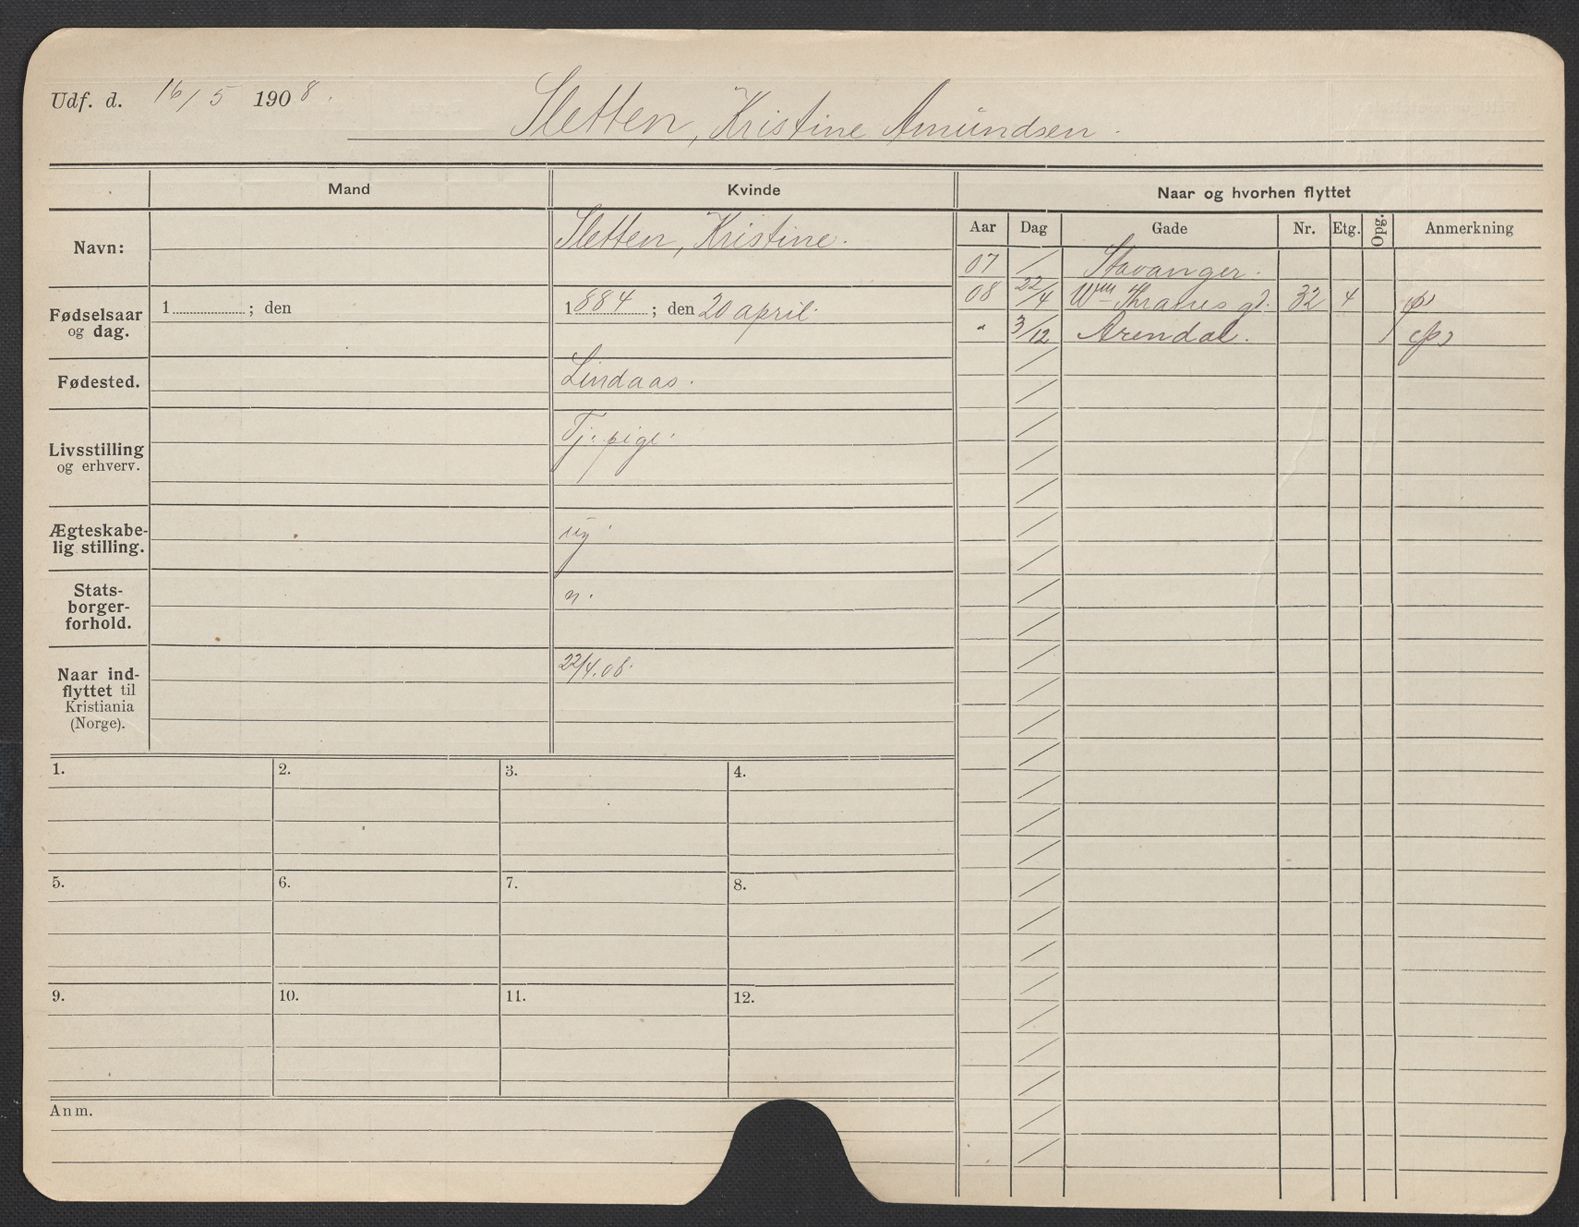 Udf. d. 16/5 1908.
Sletten, Kristine Amundsen.
Mand
Kvinde
Naar og hvorhen flyttet
Navn:
Sletten, Kristine.
Aar Dag Gade Nr. Etg. Opg. Anmerkning
07 / Stavanger.
08 22/4 Wm Thranes gd. 32 4
" 3/12 Arendal.
Fødselsaar
og dag.
1 ; den
1884 ; den 20 april.
Fødested.
Lindaas.
Livsstilling
og erhverv.
Tj. pige.
Ægteskabe-
lig stilling.
ug
Stats-
borger-
forhold.
n.
Naar ind-
flyttet til
Kristiania
(Norge).
22/4.08.
1. 2. 3. 4.
5. 6. 7. 8.
9. 10. 11. 12.
Anm.